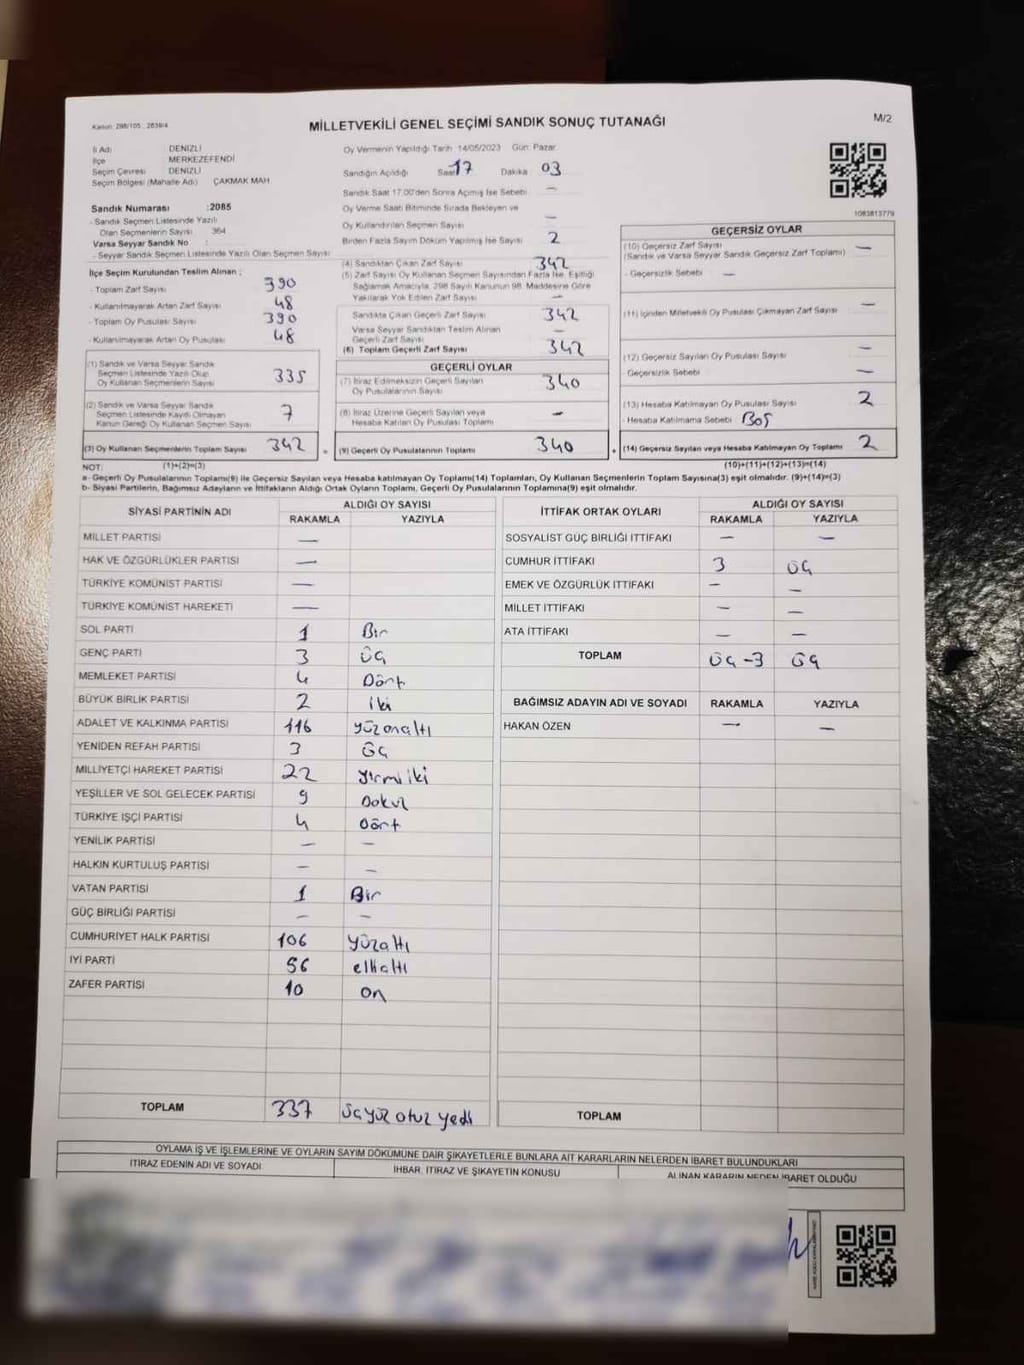 Kanun: 298/105 , 2839/4
MİLLETVEKİLİ GENEL SEÇİMİ SANDIK SONUÇ TUTANAĞI
M/2
İl Adı DENİZLİ
İlçe MERKEZEFENDİ
Seçim Çevresi DENİZLİ
Seçim Bölgesi (Mahalle Adı) ÇAKMAK MAH
Sandık Numarası :2085
- Sandık Seçmen Listesinde Yazılı
Olan Seçmenlerin Sayısı 364
Varsa Seyyar Sandık No :
- Seyyar Sandık Seçmen Listesinde Yazılı Olan Seçmen Sayısı
İlçe Seçim Kurulundan Teslim Alınan ;
- Toplam Zarf Sayısı 390
- Kullanılmayarak Artan Zarf Sayısı 48
- Toplam Oy Pusulası Sayısı 390
- Kullanılmayarak Artan Oy Pusulası 48
(1) Sandık ve Varsa Seyyar Sandık
Seçmen Listesinde Yazılı Olup
Oy Kullanan Seçmenlerin Sayısı 335
(2) Sandık ve Varsa Seyyar Sandık
Seçmen Listesinde Kaydı Olmayan
Kanun Gereği Oy Kullanan Seçmen Sayısı 7
(3) Oy Kullanan Seçmenlerin Toplam Sayısı 342
Oy Vermenin Yapıldığı Tarih 14/05/2023 Gün: Pazar
Sandığın Açıldığı Saat 17 Dakika 03
Sandık Saat 17.00'den Sonra Açılmış İse Sebebi —
Oy Verme Saati Bitiminde Sırada Bekleyen ve
Oy Kullandırılan Seçmen Sayısı —
Birden Fazla Sayım Döküm Yapılmış İse Sayısı 2
(4) Sandıktan Çıkan Zarf Sayısı 342
(5) Zarf Sayısı Oy Kullanan Seçmen Sayısından Fazla İse, Eşitliği
Sağlamak Amacıyla, 298 Sayılı Kanunun 98. Maddesine Göre
Yakılarak Yok Edilen Zarf Sayısı —
Sandıkta Çıkan Geçerli Zarf Sayısı 342
Varsa Seyyar Sandıktan Teslim Alınan
Geçerli Zarf Sayısı —
(6) Toplam Geçerli Zarf Sayısı 342
GEÇERLİ OYLAR
(7) İtiraz Edilmeksizin Geçerli Sayılan
Oy Pusulalarının Sayısı 340
(8) İtiraz Üzerine Geçerli Sayılan veya
Hesaba Katılan Oy Pusulası Toplamı —
(9) Geçerli Oy Pusulalarının Toplamı 340
1083813779
GEÇERSİZ OYLAR
(10) Geçersiz Zarf Sayısı —
(Sandık ve Varsa Seyyar Sandık Geçersiz Zarf Toplamı)
- Geçersizlik Sebebi —
(11) İçinden Milletvekili Oy Pusulası Çıkmayan Zarf Sayısı —
(12) Geçersiz Sayılan Oy Pusulası Sayısı —
- Geçersizlik Sebebi —
(13) Hesaba Katılmayan Oy Pusulası Sayısı 2
- Hesaba Katılmama Sebebi Boş
(14) Geçersiz Sayılan veya Hesaba Katılmayan Oy Toplamı 2
NOT: (1)+(2)=(3) (10)+(11)+(12)+(13)=(14)
a- Geçerli Oy Pusulalarının Toplamı(9) ile Geçersiz Sayılan veya Hesaba katılmayan Oy Toplamı(14) Toplamları, Oy Kullanan Seçmenlerin Toplam Sayısına(3) eşit olmalıdır. (9)+(14)=(3)
b- Siyasi Partilerin, Bağımsız Adayların ve İttifakların Aldığı Ortak Oyların Toplamı, Geçerli Oy Pusulalarının Toplamına(9) eşit olmalıdır.
SİYASİ PARTİNİN ADI ALDIĞI OY SAYISI
RAKAMLA YAZIYLA
MİLLET PARTİSİ —
HAK VE ÖZGÜRLÜKLER PARTİSİ —
TÜRKİYE KOMÜNİST PARTİSİ —
TÜRKİYE KOMÜNİST HAREKETİ —
SOL PARTİ 1 Bir
GENÇ PARTİ 3 Üç
MEMLEKET PARTİSİ 4 Dört
BÜYÜK BİRLİK PARTİSİ 2 iki
ADALET VE KALKINMA PARTİSİ 116 yüzonaltı
YENİDEN REFAH PARTİSİ 3 Üç
MİLLİYETÇİ HAREKET PARTİSİ 22 yirmi iki
YEŞİLLER VE SOL GELECEK PARTİSİ 9 Dokuz
TÜRKİYE İŞÇİ PARTİSİ 4 Dört
YENİLİK PARTİSİ — —
HALKIN KURTULUŞ PARTİSİ — —
VATAN PARTİSİ 1 Bir
GÜÇ BİRLİĞİ PARTİSİ — —
CUMHURİYET HALK PARTİSİ 106 yüzaltı
İYİ PARTİ 56 elli altı
ZAFER PARTİSİ 10 on
TOPLAM 337 üçyüz otuz yedi
İTTİFAK ORTAK OYLARI ALDIĞI OY SAYISI
RAKAMLA YAZIYLA
SOSYALİST GÜÇ BİRLİĞİ İTTİFAKI — —
CUMHUR İTTİFAKI 3 üç
EMEK VE ÖZGÜRLÜK İTTİFAKI — —
MİLLET İTTİFAKI — —
ATA İTTİFAKI — —
TOPLAM üç -3 üç
BAĞIMSIZ ADAYIN ADI VE SOYADI RAKAMLA YAZIYLA
HAKAN ÖZEN — —
TOPLAM
OYLAMA İŞ VE İŞLEMLERİNE VE OYLARIN SAYIM DÖKÜMÜNE DAİR ŞİKAYETLERLE BUNLARA AİT KARARLARIN NELERDEN İBARET BULUNDUKLARI
İTİRAZ EDENİN ADI VE SOYADI İHBAR, İTİRAZ VE ŞİKAYETİN KONUSU ALINAN KARARIN NEDEN İBARET OLDUĞU